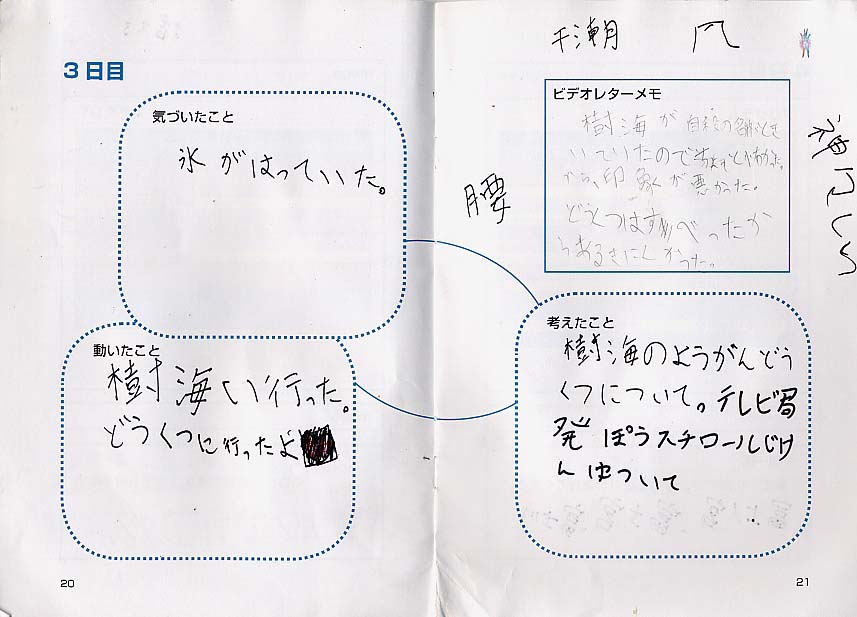 3日目
気づいたこと
氷がはっていた。
動いたこと
樹海い行った。
どうくつに行ったよ
20
干潮
ビデオレターメモ
樹海が自殺の名所とき
いていたので
から、印象が悪かった。
どうくつはすべったか
らあるきにくかった。
腰
考えたこと
樹海のようがんどう
くつについて。テレビ局
発ぽうスチロールじけ
んについて
21